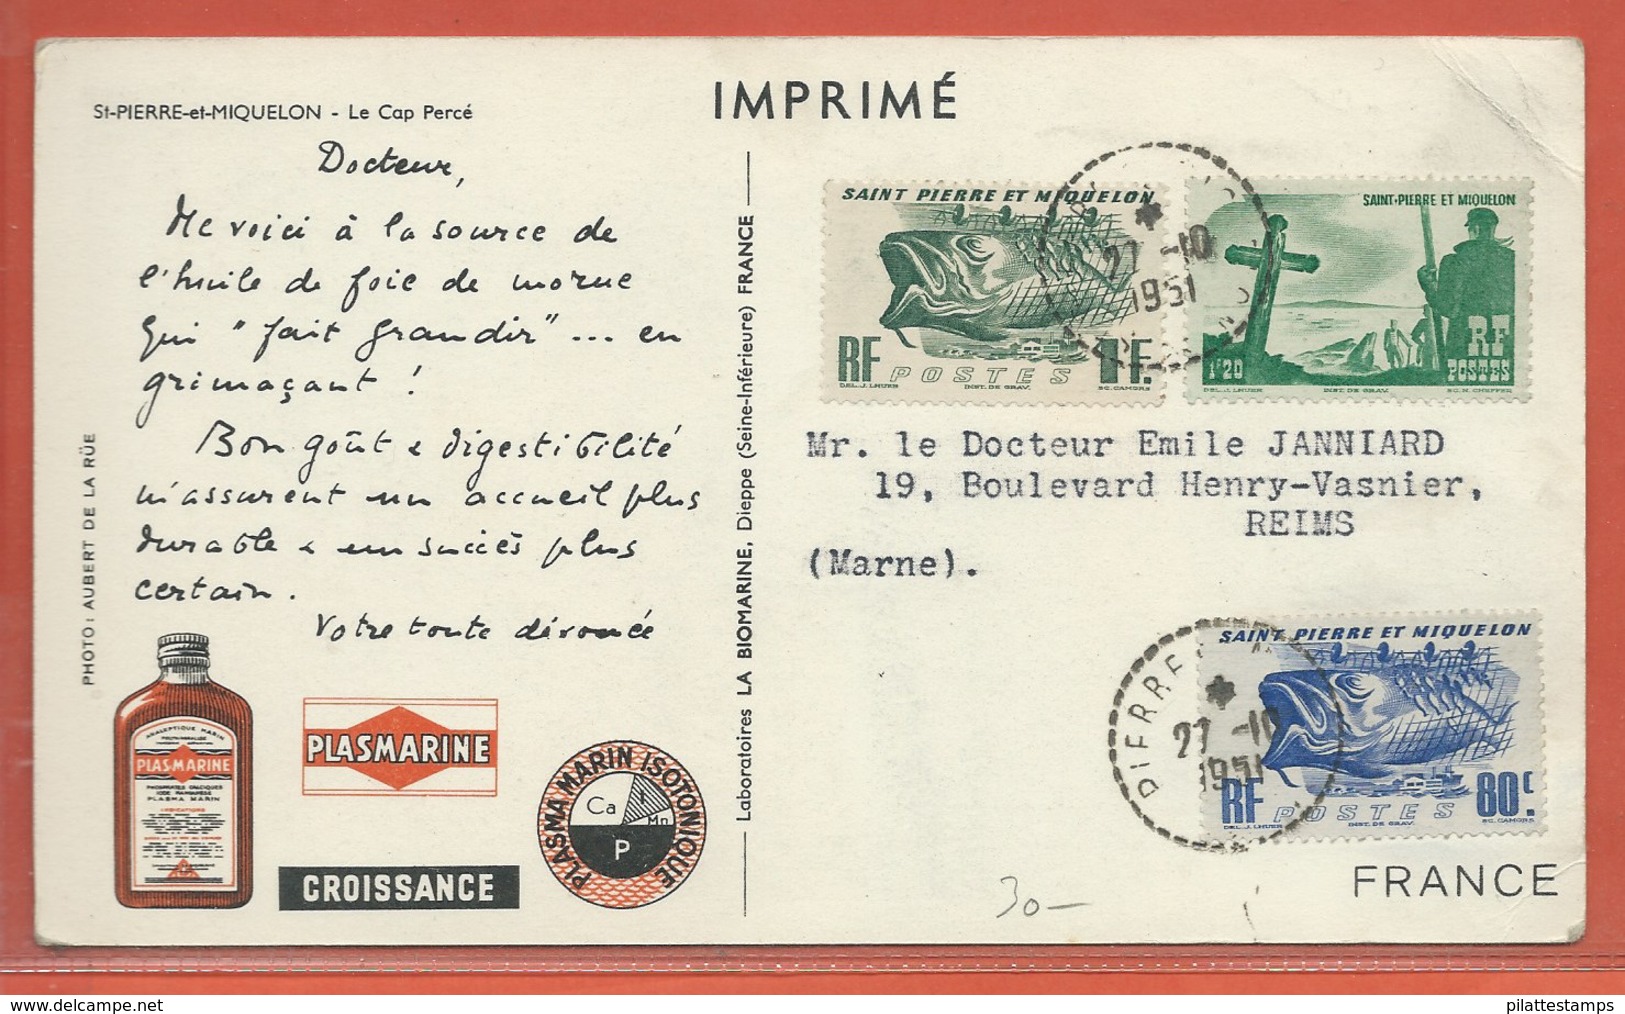 St-PIERRE-et-MIQUELON - Le Cap Percé
IMPRIMÉ
Docteur,
Me voici à la source de
l'huile de foie de morue
qui "fait grandir"... en
grimaçant !
Bon goût & digestibilité
m'assurent un accueil plus
durable & un succès plus
certain.
Votre toute dévouée
PHOTO: AUBERT DE LA RÜE
PLASMARINE
PLASMA MARIN
PLASMARINE
CROISSANCE
PLASMA MARIN ISOTONIQUE
Ca
I
Mn
P
Laboratoires LA BIOMARINE, Dieppe (Seine-Inférieure) FRANCE
SAINT PIERRE ET MIQUELON
RF POSTES 1F.
DEL. J. LHUER INST. DE GRAV. SC. CAMORS
SAINT-PIERRE ET MIQUELON
1F20
RF
POSTES
DEL. J. LHUER INST. DE GRAV. SC. H. CHEFFER
27 -10
1951
Mr. le Docteur Emile JANNIARD
19, Boulevard Henry-Vasnier,
REIMS
(Marne).
SAINT PIERRE ET MIQUELON
RF POSTES 80c.
DEL. J. LHUER INST. DE GRAV. SC. CAMORS
PIERRE
27 -10
1951
30-
FRANCE
delcampe.net
pilattestamps